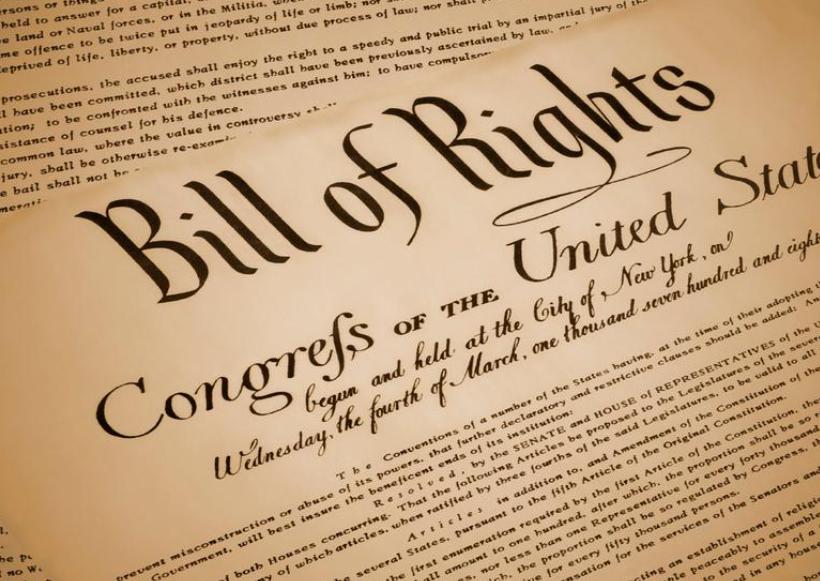 held to answer for a capital,
e land or Naval forces, or in the Militia,
me offence to be twice put in jeopardy of life or limb; nor shall
eprived of life, liberty, or property, without due process of law; nor shall
prosecutions, the accused shall enjoy the right to a speedy and public trial by an impartial jury of the
ll have been committed, which district shall have been previously ascertained by law,
tion; to be confronted with the witnesses against him; to have compulsor
sistance of counsel for his defence.
common law, where the value in controversy
jury, shall be otherwise re-exami
e bail shall not be
Bill of Rights
Congreſs OF THE United State
begun and held at the City of New York, on
Wednesday, the fourth of March, one thousand seven hundred and eight
The Conventions of a number of the States having, at the time of their adopting
prevent misconstruction or abuse of its powers, that further declaratory and restrictive clauses should be added:
Government, will best insure the beneficent ends of its institution:
Resolved, by the SENATE and HOUSE of REPRESENTATIVES of the
of both Houses concurring. That the following Articles be proposed to the Legislatures of the several
ny of which articles, when ratified by three fourths of the said Legislatures, to be valid to all
Articles in addition to, and Amendment of the Constitution of the
several States, pursuant to the fifth Article of the Original Constitution.
the first enumeration required by the first Article of the Constitution,
shall amount to one hundred, after which, the proportion shall be so
nor less than one Representative for every forty thousand
the proportion shall be so regulated by Congress,
ve for every fifty thousand persons.
ation for the services of the Senators and
ecting an establishment of religi
peaceably to assemble
the security of a
in any hous